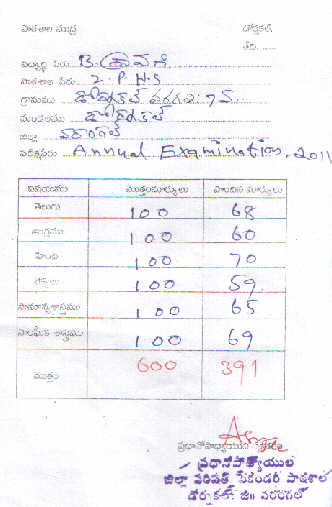 పాఠశాల ముద్ర డోర్నకల్
తేది.
విద్యార్థి పేరు B.
పాఠశాల పేరు Z.P.H.S
గ్రామము డోర్నకల్
మండలము డోర్నకల్
జిల్లా వరంగల్
పరీక్షపేరు Annual Examination, 2011
విషయము మొత్తంమార్కులు పొందిన మార్కులు
తెలుగు 100 68
ఇంగ్లీషు 100 60
హింది 100 70
లెక్కలు 100 59
సామాన్యశాస్త్రము 100 65
సాంఘీక శాస్త్రము 100 69
మొత్తం 600 391
ప్రధానోపాధ్యాయుని
ప్రధానోపాధ్యాయుల
జిల్లా పరిషత్ సెకండరీ పాఠశాల
డోర్నకల్. జిల్లా వరంగల్